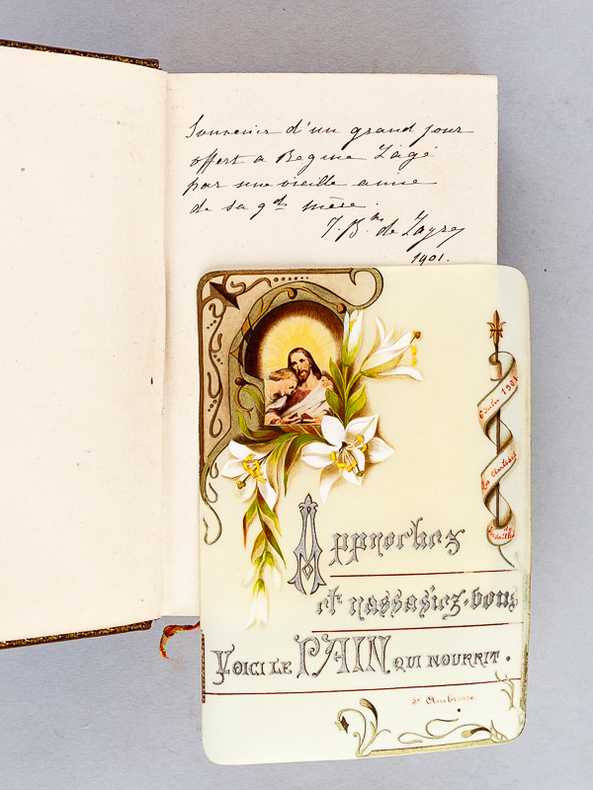 Souvenir d'un grand jour
offert a Regina Lagé
par une vieille amie
de sa gde mère.
J. B. de
1901.
Juin 1901
Les
Approchez
et rassasiez-vous
Voici le PAIN qui nourrit.
St Ambroise